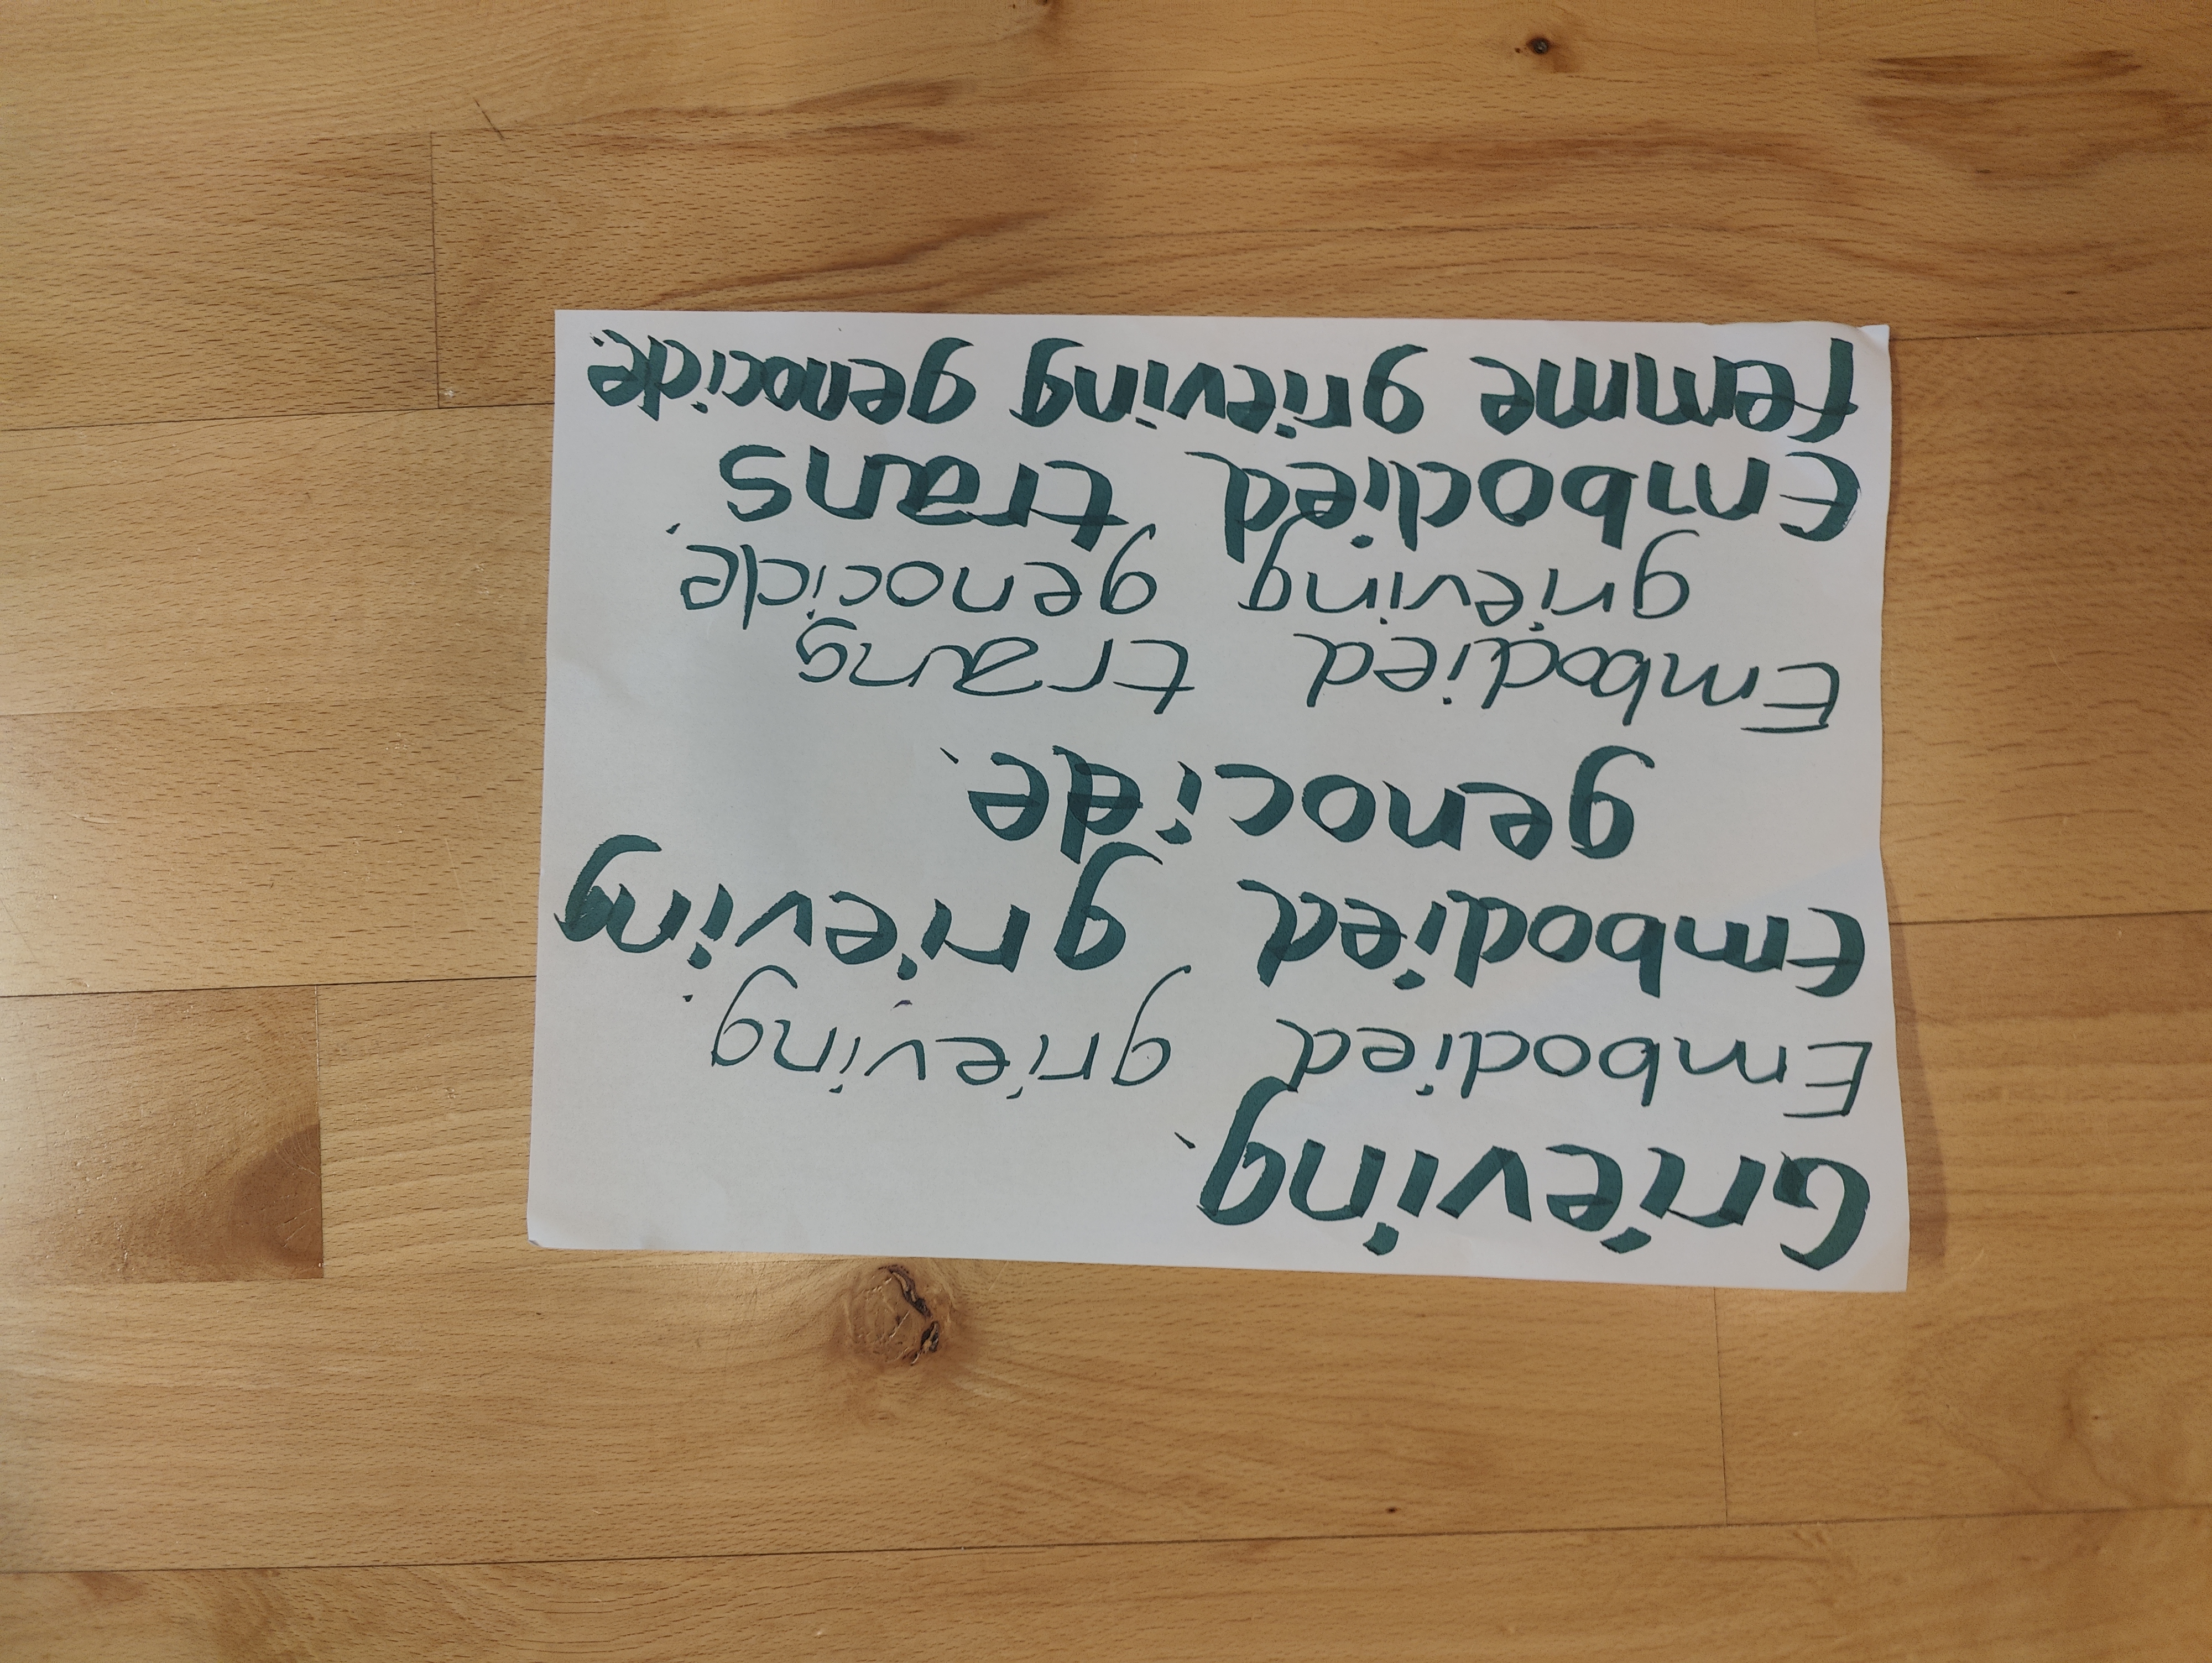 Grieving.
Embodied grieving.
Embodied grieving
genocide.
Embodied trans
grieving genocide.
Embodied trans
femme grieving genocide.